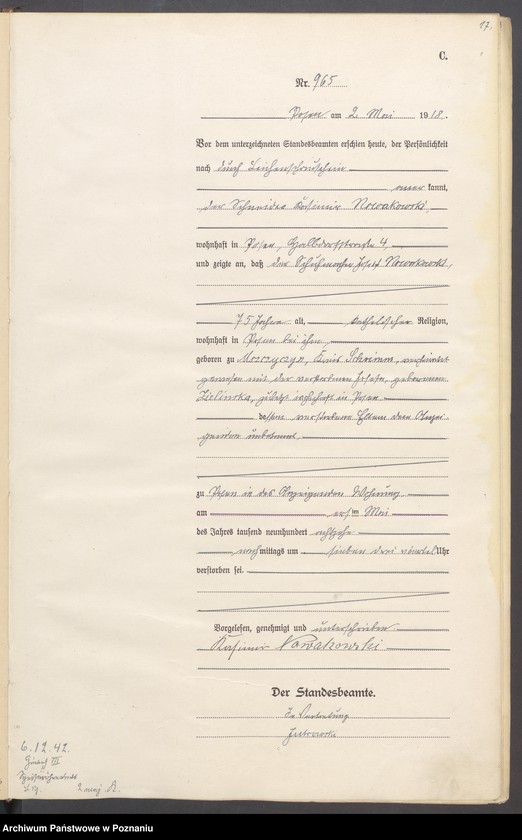 17.
C.
Nr. 965
Posen am 2. Mai 1918.
Vor dem unterzeichneten Standesbeamten erschien heute, der Persönlichkeit
nach durch Leichenschauschein
aner kannt,
der Schneider Kasimir Nowakowski,
wohnhaft in Posen, Halbdorfstraße 4,
und zeigte an, daß der Schuhmacher Josef Nowakowski,
75 Jahre alt, katholischer Religion,
wohnhaft in Posen bei ihm,
geboren zu Moszczyczyn, Kreis Schrimm, verheiratet
gewesen mit der verstorbenen Josefa, geborenen
Zielinska, zuletzt wohnhaft in Posen
dessen verstorbene Eltern dem Anzei-
genden unbekannt
zu Posen in des Anzeigenden Wohnung
am ersten Mai
des Jahres tausend neunhundert achtzehn
nachmittags um sieben drei viertel Uhr
verstorben sei.
Vorgelesen, genehmigt und unterschrieben
Kasimir Nowakowski
Der Standesbeamte.
In Vertretung
6.12.42.
Archiwum Państwowe w Poznaniu